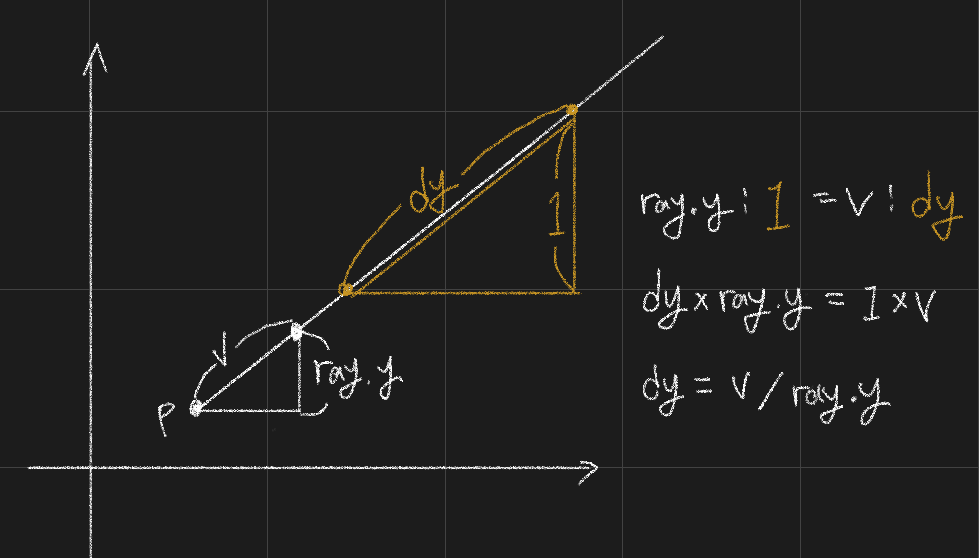 dy
1
v
ray.y
P
ray.y : 1 = v : dy
dy × ray.y = 1 × v
dy = v / ray.y